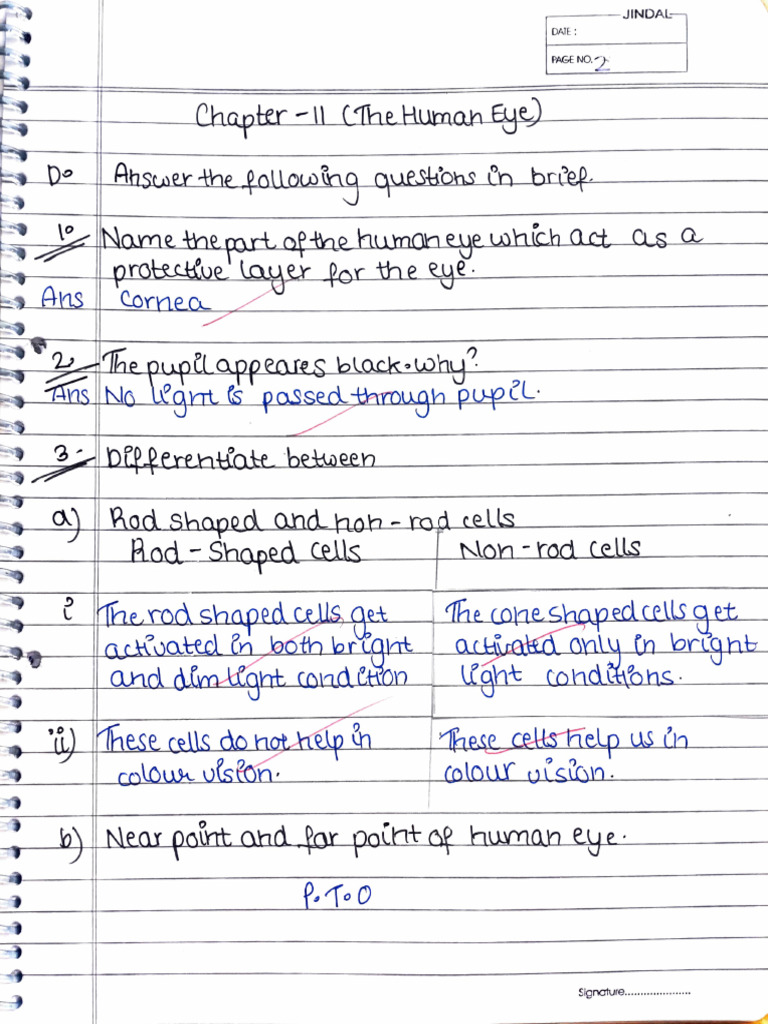 JINDAL
DATE :
PAGE NO. 2
Chapter - 11 (The Human Eye)
D. Answer the following questions in brief.
1. Name the part of the human eye which act as a
protective layer for the eye.
Ans Cornea
2. The pupil appeares black. why?
Ans No light is passed through pupil.
3. Differentiate between
a) Rod shaped and non-rod cells
Rod - Shaped cells Non-rod cells
i The rod shaped cells get The cone shaped cells get
activated in both bright activated only in bright
and dim light condition light conditions.
ii) These cells do not help in These cells help us in
colour vision. colour vision.
b) Near point and far point of human eye.
P.T.O
Signature.....................